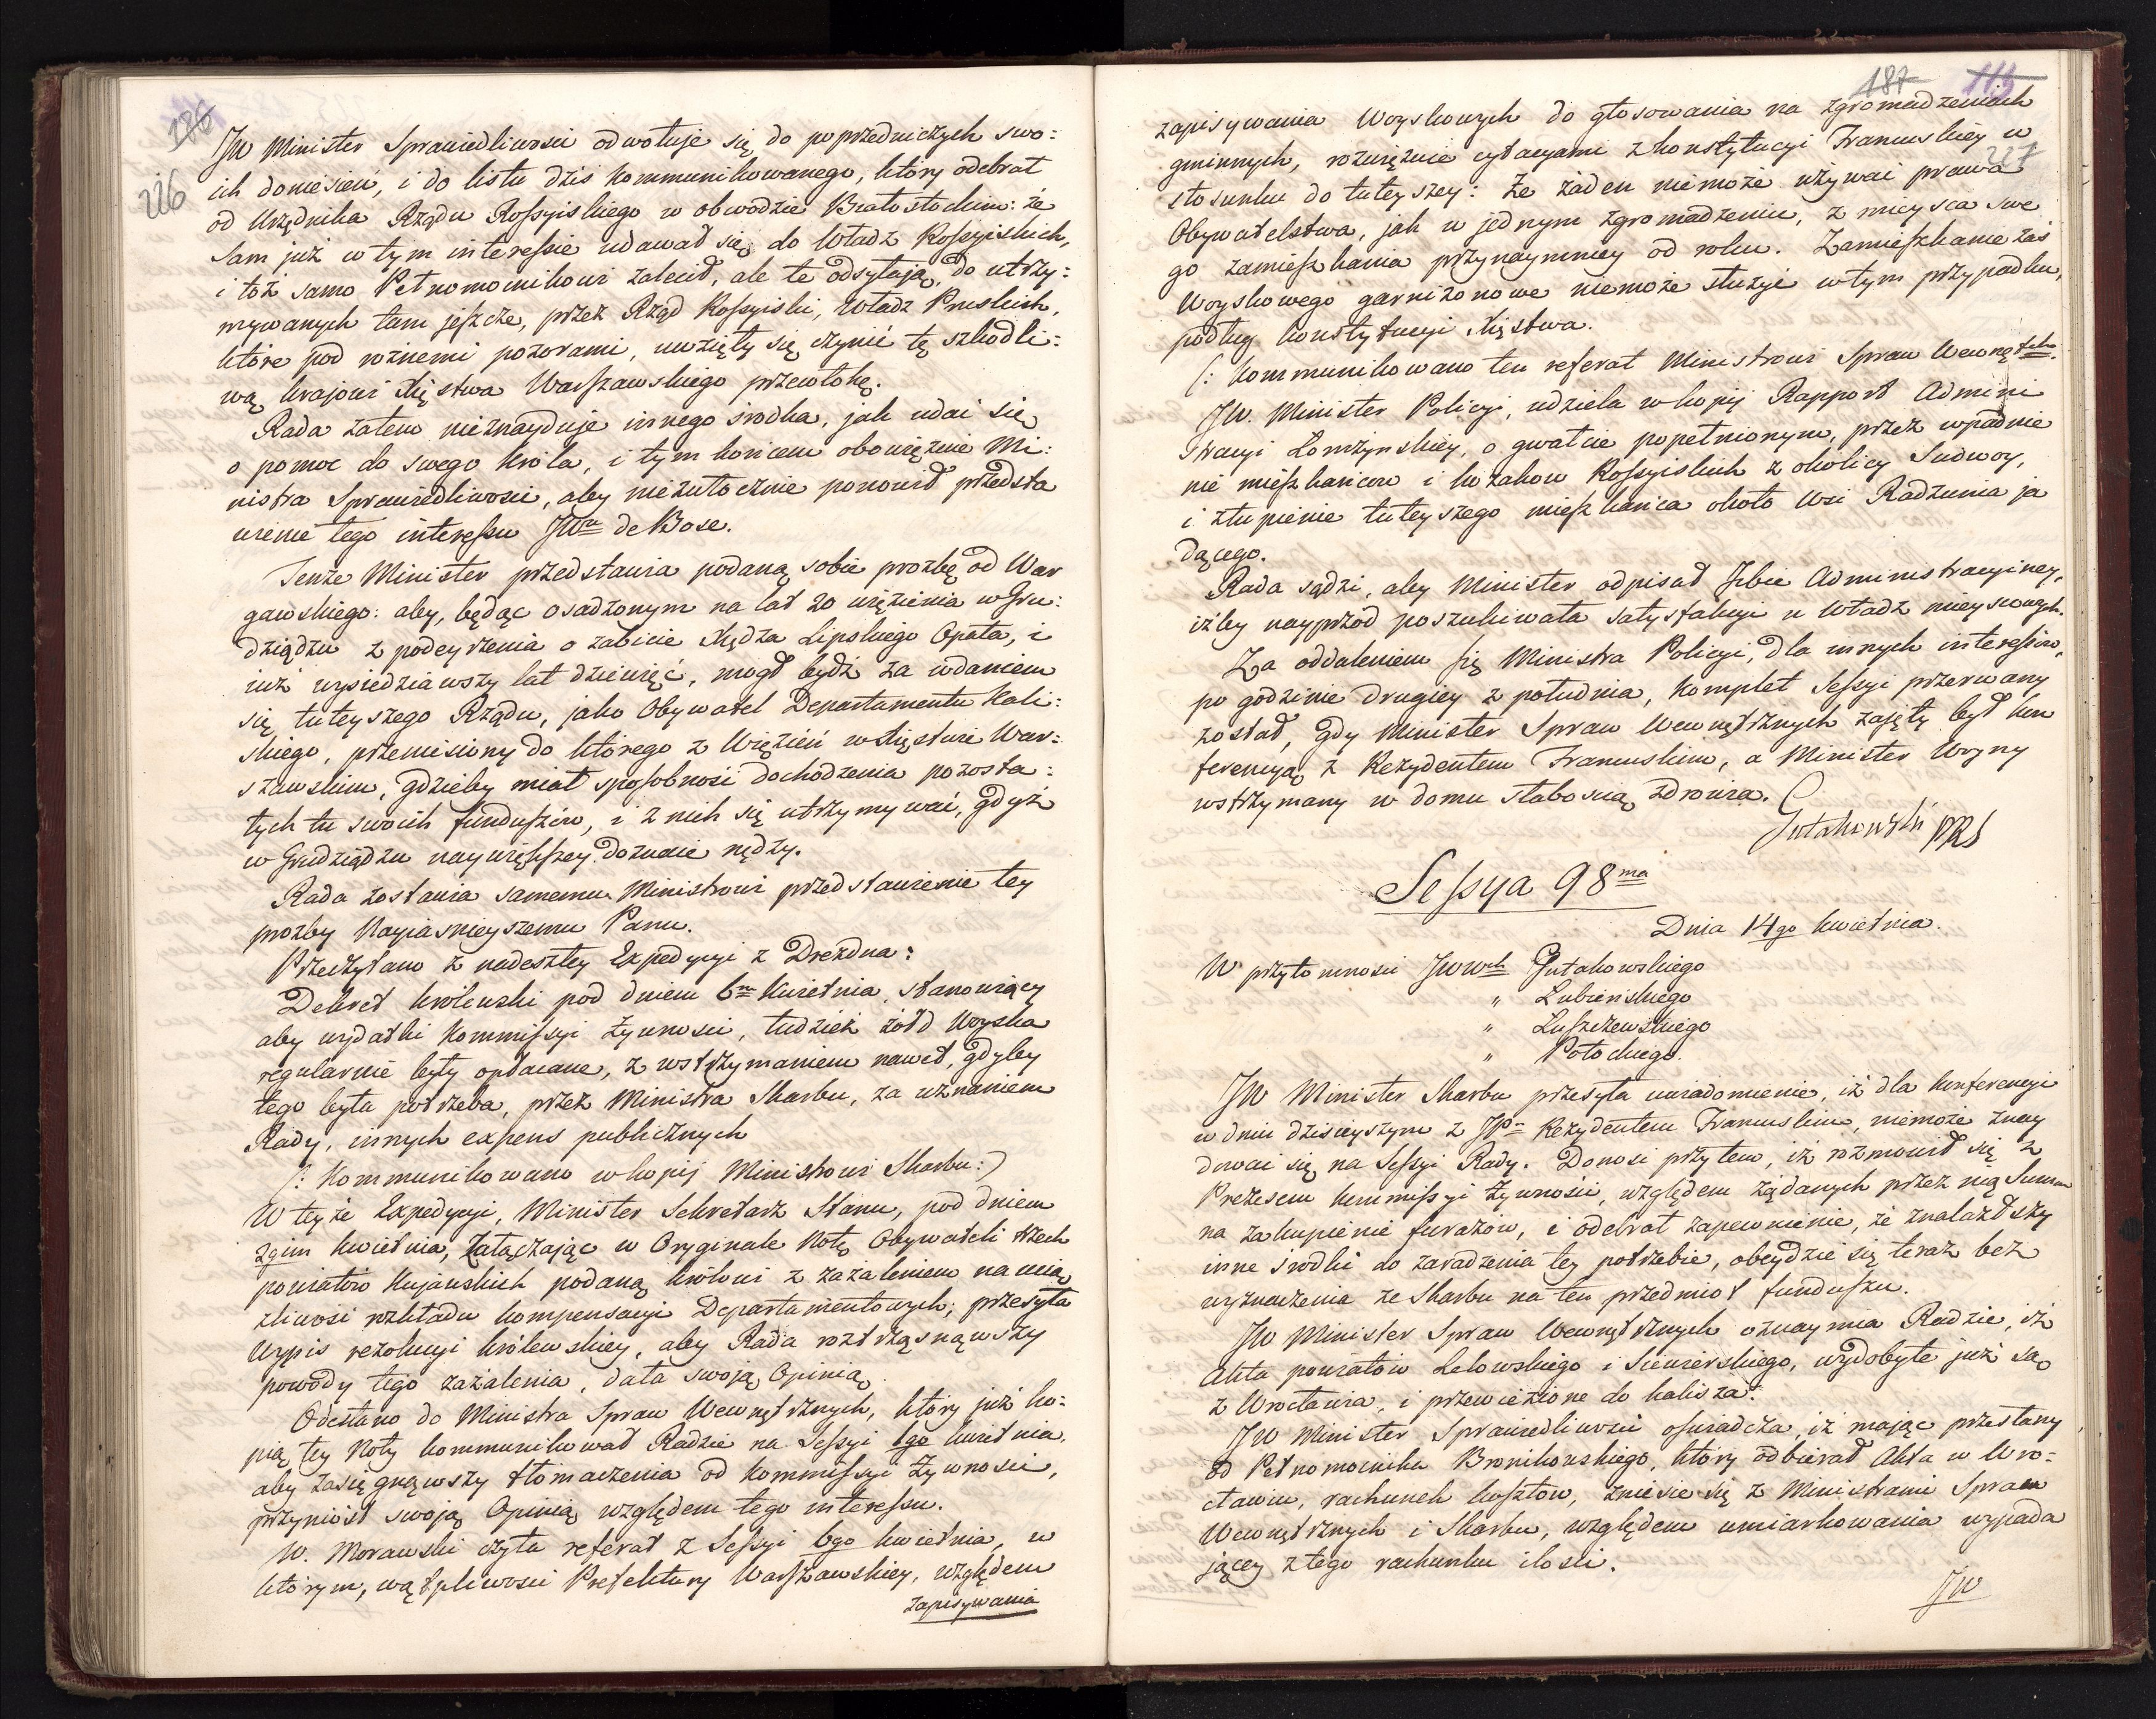 186
226
JW Minister Sprawiedliwosci odwołuje się do poprzedniczych swo:
ich doniesień, i do listu dziś kommunikowanego, który odebrał
od Urzędnika Rządu Rossyiskiego w obwodzie Białostockim: że
Sam już w tym interessie udawał się do Władz Rossyiskich,
i toż samo Pełnomocnikowi zalecił, ale te odsyłają do utrzy:
mywanych tam jeszcze, przez Rząd Rossyiski, Władz Pruskich,
które pod rożnemi pozorami, uwzięły się czynić tę szkodli:
wą krajowi Xięstwa Warszawskiego przewłokę.
Rada zatem nieznayduje innego środka, jak udać się
o pomoc do swego Króla, i tym końcem obowięzuie Mi:
nistra Sprawiedliwosci, aby niezwłocznie ponowił przedsta
wienie tego interessu JWu de Bose.
Tenże Minister przedstawia podaną sobie prozbę od War
gawskiego: aby, będąc osadzonym na lat 20 więzienia w Gru:
dziądzu z podeyrzenia o zabicie Xiędza Lipskiego Opata, i
już wysiedziawszy lat dziewięć, mogł bydź za wdaniem
się tuteyszego Rządu, jako Obywatel Departamentu Kali:
skiego, przeniesiony do którego z Więzień w Xięstwie War:
szawskim, gdzieby miał sposobność dochodzenia pozosta:
łych tu swoich funduszów, i z nich się utrzymywać, gdyż
w Grudziądzu naywiększey doznaie nędzy.
Rada zostawia samemu Ministrowi przedstawienie tey
prozby Nayiaśnieyszemu Panu.
Przeczytano z nadeszłey Expedycyi z Drezdna:
Dekret królewski pod dniem 6m Kwietnia, stanowiący
aby wydatki Kommissyi Żywnosci, tudzież żołd Woyska
regularnie były opłacane, z wstrzymaniem nawet, gdyby
tego była potrzeba, przez Ministra Skarbu, za uznaniem
Rady, innych expens publicznych
(: Kommunikowano w kopij Ministrowi Skarbu:)
W teyże Expedycyi, Minister Sekretarz Stanu, pod dniem
2gim kwietnia, załączając w Oryginale Notę Obywateli trzech
powiatów Kujawskich podaną królowi z zażaleniem na ucią
żliwość rozkładu kompensacyi Departamentowych; przesyła
Wypis rezolucyi królewskiey, aby Rada roztrząsnąwszy
powody tego zażalenia, dała swoją Opinią.
Odesłano do Ministra Spraw Wewnętrznych, który już ko:
pią tey Noty kommunikował Radzie na Sessyi 1go kwietnia,
aby zasięgnąwszy tłomaczenia od Kommissyi Żywnosci,
przyniosł swoją Opinią względem tego interessu.
W. Morawski czyta referat z Sessyi 6go kwietnia, w
którym, wątpliwosci Prefektury Warszawskiey, względem
zapisywania
187 113
227
zapisywania Woyskowych do głosowania na zgromadzeniach
gminnych, rozwięzuie cytacyami z konstytucyi Francuskiey w
stosunku do tuteyszey: że żaden niemoże używać prawa
Obywatelstwa, jak w jednym zgromadzeniu, z mieysca swe
go zamieszkania przynaymniey od roku. Zamieszkanie zaś
Woyskowego garnizonowe niemoże służyć w tym przypadku,
podług konstytucyi Xięstwa.
(: Kommunikowano ten referat Ministrowi Spraw Wewnętrzch.
JW. Minister Policyi, udziela w kopij Rapport Admini
stracyi Łomżyńskiey, o gwałcie popełnionym, przez wpadnie
nie mieszkańców i kozaków Rossyiskich z okolicy Sudwoy,
i złupienie tuteyszego mieszkańca około Wsi Radzunia ja
dącego.
Rada sądzi, aby Minister odpisał Izbie Administracyiney,
iżby nayprzód poszukiwała satysfakcyi u Władz mieyscowych.
Za oddaleniem się Ministra Policyi, dla innych interessów,
po godzinie drugiey z południa, komplet Sessyi przerwany
został, gdy Minister Spraw Wewnętrznych zajęty był kon
ferencyą z Rezydentem Francuskim, a Minister Woyny
wstrzymany w domu słabością zdrowia.
Gutakowski PRS
Sessya 98ma
Dnia 14go kwietnia.
W przytomnosci JWWch Gutakowskiego
" Łubieńskiego
" Łuszczewskiego
" Potockiego.
JW Minister Skarbu przesyła uwiadomienie, iż dla konferencyi
w dniu dzisieyszym z JPm Rezydentem Francuskim, niemoże znay
dować się na Sessyi Rady. Donosi przytem, iż rozmowił się z
Prezesem kommissyi Żywności, względem żądanych przez nią Summ
na zakupienie furażów, i odebrał zapewnienie, że znalazłszy
inne środki do zaradzenia tey potrzebie, obeydzie się teraz bez
wyznaczenia ze Skarbu na ten przedmiot funduszu.
JW Minister Spraw Wewnętrznych oznaymia Radzie, iż
Akta powiatów Lelowskiego i Siewierskiego, wydobyte już są
z Wrocławia, i przewiezione do Kalisza.
JW Minister Sprawiedliwości oświadcza, iż mając przesłany
od Pełnomocnika Bronikowskiego, który odbierał Akta w Wro=
cławiu, rachunek kosztów, zniesie się z Ministrami Spraw
Wewnętrznych i Skarbu, względem umiarkowania wypada
jącey z tego rachunku ilości.
JW